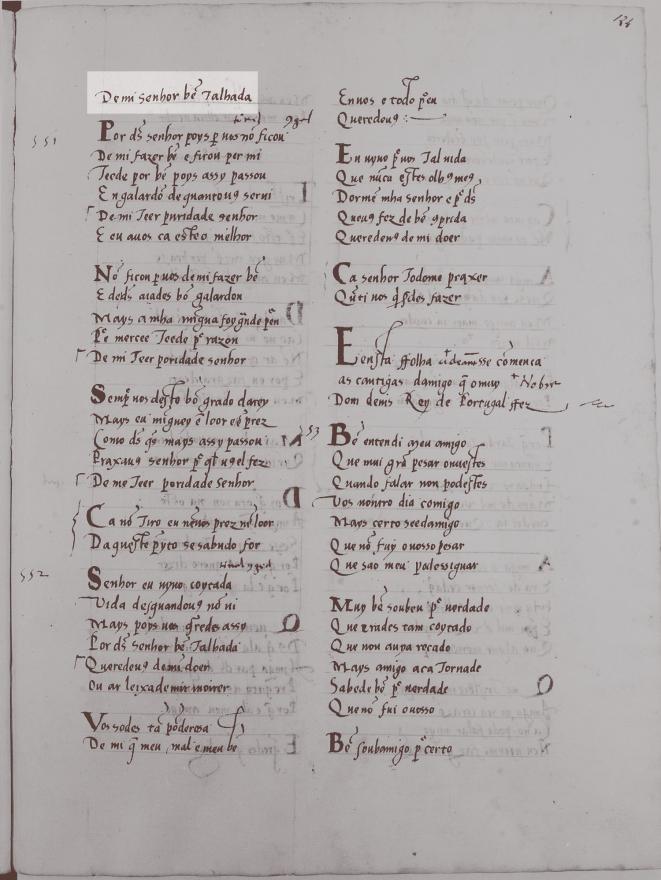 186
De mi senhor bẽ Talhada
551
Por ds̃ senhor poys ꝑ uos nõ ficou
De mi fazer bẽ e ficou per mi
Teede por bẽ poys assy passou
En galardõ de quantouꝯ serui
De mi Teer puridade senhor
E eu auos ca estẽ o milhor
Nõ ficou ꝑ uos demi fazer bẽ
E deds̃ aiades bõ galardon
Mays a mha migua foy
mercee Teede por razõ
De mi Teer poridade senhor
Sempr uos desto bõ grado darey
Mays eu minguey ẽ loor e ẽ prez
Como ds̃ qs̃ mays assy passou
Praxauꝯ senhor
De me Teer poridade senhor
Ca nõ Tiro eu nẽ uos prez nẽ loor
Daqueste pyto se sabudo for
552
Senhor eu uyuo coytada
Uida desquandouꝯ nõ ui
Mays poys uos qredes assy
Por ds̃ senhor bẽ Talhada
Queredeuꝯ demĩ doer
Ou ar leixademir moirer
Vos sodes tã poderosa
De mi q̃ meu mal e meu bẽ
En uos e todo
Queredeuꝯ
En uyuo ꝑ uos Tal uida
Que nũca estes olhꝯ meꝯ
Dormẽ mha senhor e ds̃
Queuꝯ fez de bẽ cõprida
Queredeuꝯ de mi doer
Ca senhor Todome praxer
uos fazer
En esta ffolha adeante sse comença
as cantigas damigo q̃ o muy Nobre
Dom denis Rey de Portugal ffez
553
Bẽ entendi meu amigo
Que mui grã pesar ouuestes
Quando falar non podestes
Vos noutro dia comigo
Mays certo seed amigo
Que nõ fuy o uosso pesar
Que sao meu podess iguar
Muy bẽ soubeu pr uerdade
Que erades tam coytado
Que non auya recado
Mays amigo aca Tornade
Sabede bẽ pr uerdade
Que nõ fui o uosso
Bẽ soubamigo pr certo